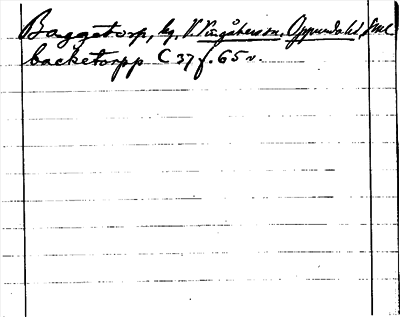 Baggetorp, hg, V. Vingåkers sn, Oppunda hd, Sml
backetorpp C 37 f. 65 v.